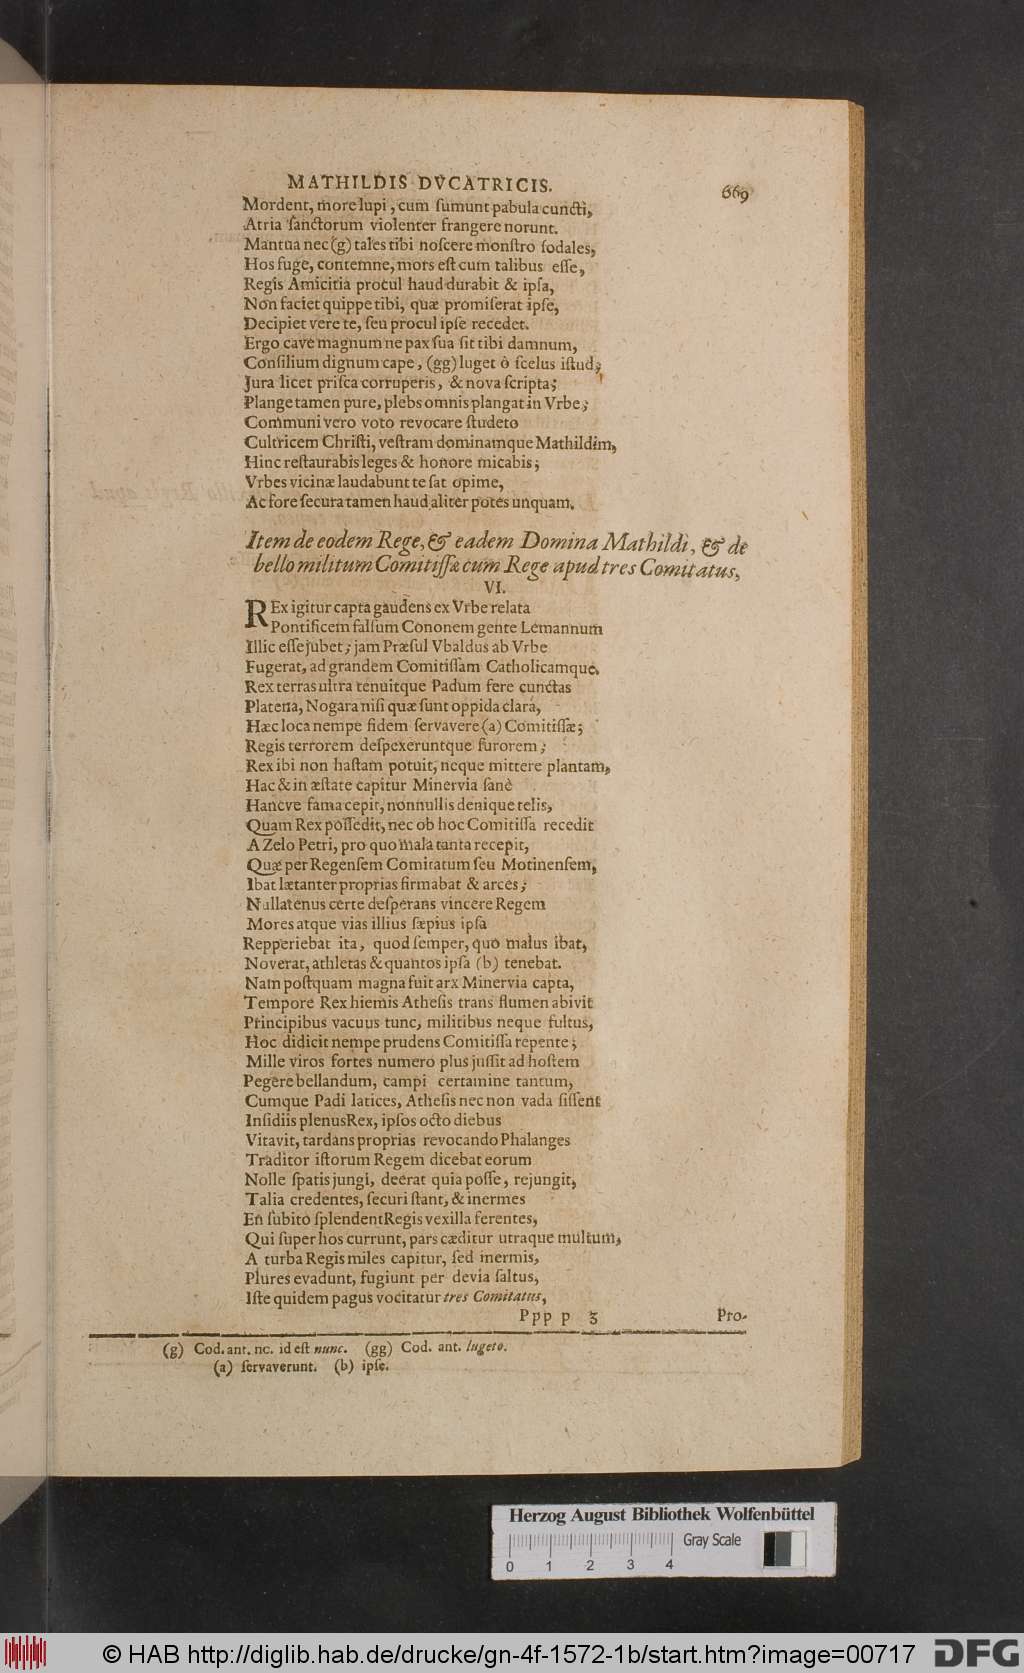 MATHILDIS DVCATRICIS.
669
Mordent, more lupi, cum ſumunt pabula cuncti,
Atria ſanctorum violenter frangere norunt.
Mantua nec (g) tales tibi noſcere monſtro ſodales,
Hos fuge, contemne, mors eſt cum talibus eſſe,
Regis Amicitia procul haud durabit & ipſa,
Non faciet quippe tibi, quæ promiſerat ipſe,
Decipiet vere te, ſeu procul ipſe recedet.
Ergo cave magnum ne pax ſua ſit tibi damnum,
Conſilium dignum cape, (gg) luget ò ſcelus iſtud;
Jura licet priſca corruperis, & nova ſcripta;
Plange tamen pure, plebs omnis plangat in Vrbe;
Communi vero voto revocare ſtudeto
Cultricem Chriſti, veſtram dominamque Mathildim,
Hinc reſtaurabis leges & honore micabis;
Vrbes vicinæ laudabunt te ſat opime,
Ac fore ſecura tamen haud aliter potes unquam.
Item de eodem Rege, & eadem Domina Mathildi, & de
bello militum Comitiſſæ cum Rege apud tres Comitatus,
VI.
REx igitur capta gaudens ex Vrbe relata
Pontificem falſum Cononem gente Lemannum
Illic eſſe jubet; jam Præſul Vbaldus ab Vrbe
Fugerat, ad grandem Comitiſſam Catholicamque.
Rex terras ultra tenuitque Padum fere cunctas
Platena, Nogara niſi quæ ſunt oppida clara,
Hæc loca nempe fidem ſervavere (a) Comitiſſæ;
Regis terrorem deſpexeruntque furorem;
Rex ibi non haſtam potuit, neque mittere plantam,
Hac & in æſtate capitur Minervia ſanè
Hancve fama cepit, nonnullis denique telis,
Quam Rex poſſedit, nec ob hoc Comitiſſa recedit
A Zelo Petri, pro quo mala tanta recepit,
Quæ per Regenſem Comitatum ſeu Motinenſem,
Ibat lætanter proprias firmabat & arces;
Nullatenus certe deſperans vincere Regem
Mores atque vias illius ſæpius ipſa
Repperiebat ita, quod ſemper, quo malus ibat,
Noverat, athletas & quantos ipſa (b) tenebat.
Nam poſtquam magna fuit arx Minervia capta,
Tempore Rex hiemis Atheſis trans flumen abivit
Principibus vacuus tunc, militibus neque fultus,
Hoc didicit nempe prudens Comitiſſa repente;
Mille viros fortes numero plus juſſit ad hoſtem
Pegere bellandum, campi certamine tantum,
Cumque Padi latices, Atheſis nec non vada ſiſſent
Inſidiis plenus Rex, ipſos octo diebus
Vitavit, tardans proprias revocando Phalanges
Traditor iſtorum Regem dicebat eorum
Nolle ſpatis jungi, deerat quia poſſe, rejungit,
Talia credentes, ſecuri ſtant, & inermes
En ſubito ſplendent Regis vexilla ferentes,
Qui ſuper hos currunt, pars cæditur utraque multum,
A turba Regis miles capitur, ſed inermis,
Plures evadunt, fugiunt per devia ſaltus,
Iſte quidem pagus vocitatur tres Comitatus,
Ppp p 3
Pro-
(g) Cod. ant. nc. id eſt nunc. (gg) Cod. ant. lugeto.
(a) ſervaverunt. (b) ipſe.
Herzog August Bibliothek Wolfenbüttel
Gray Scale
0 1 2 3 4
© HAB http://diglib.hab.de/drucke/gn-4f-1572-1b/start.htm?image=00717
DFG